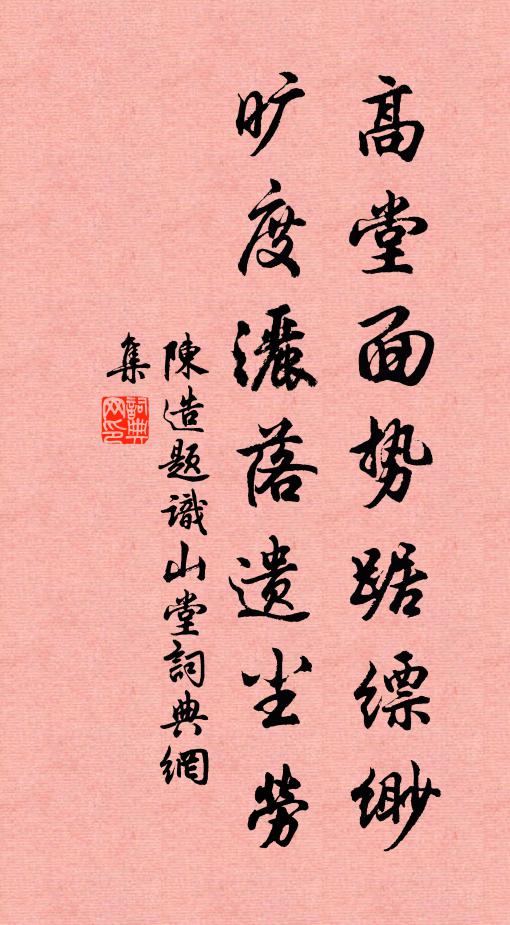 高堂面势踞缥缈
旷度灑落遗尘勞
陳造題識山堂詞典網
集
詞典網印